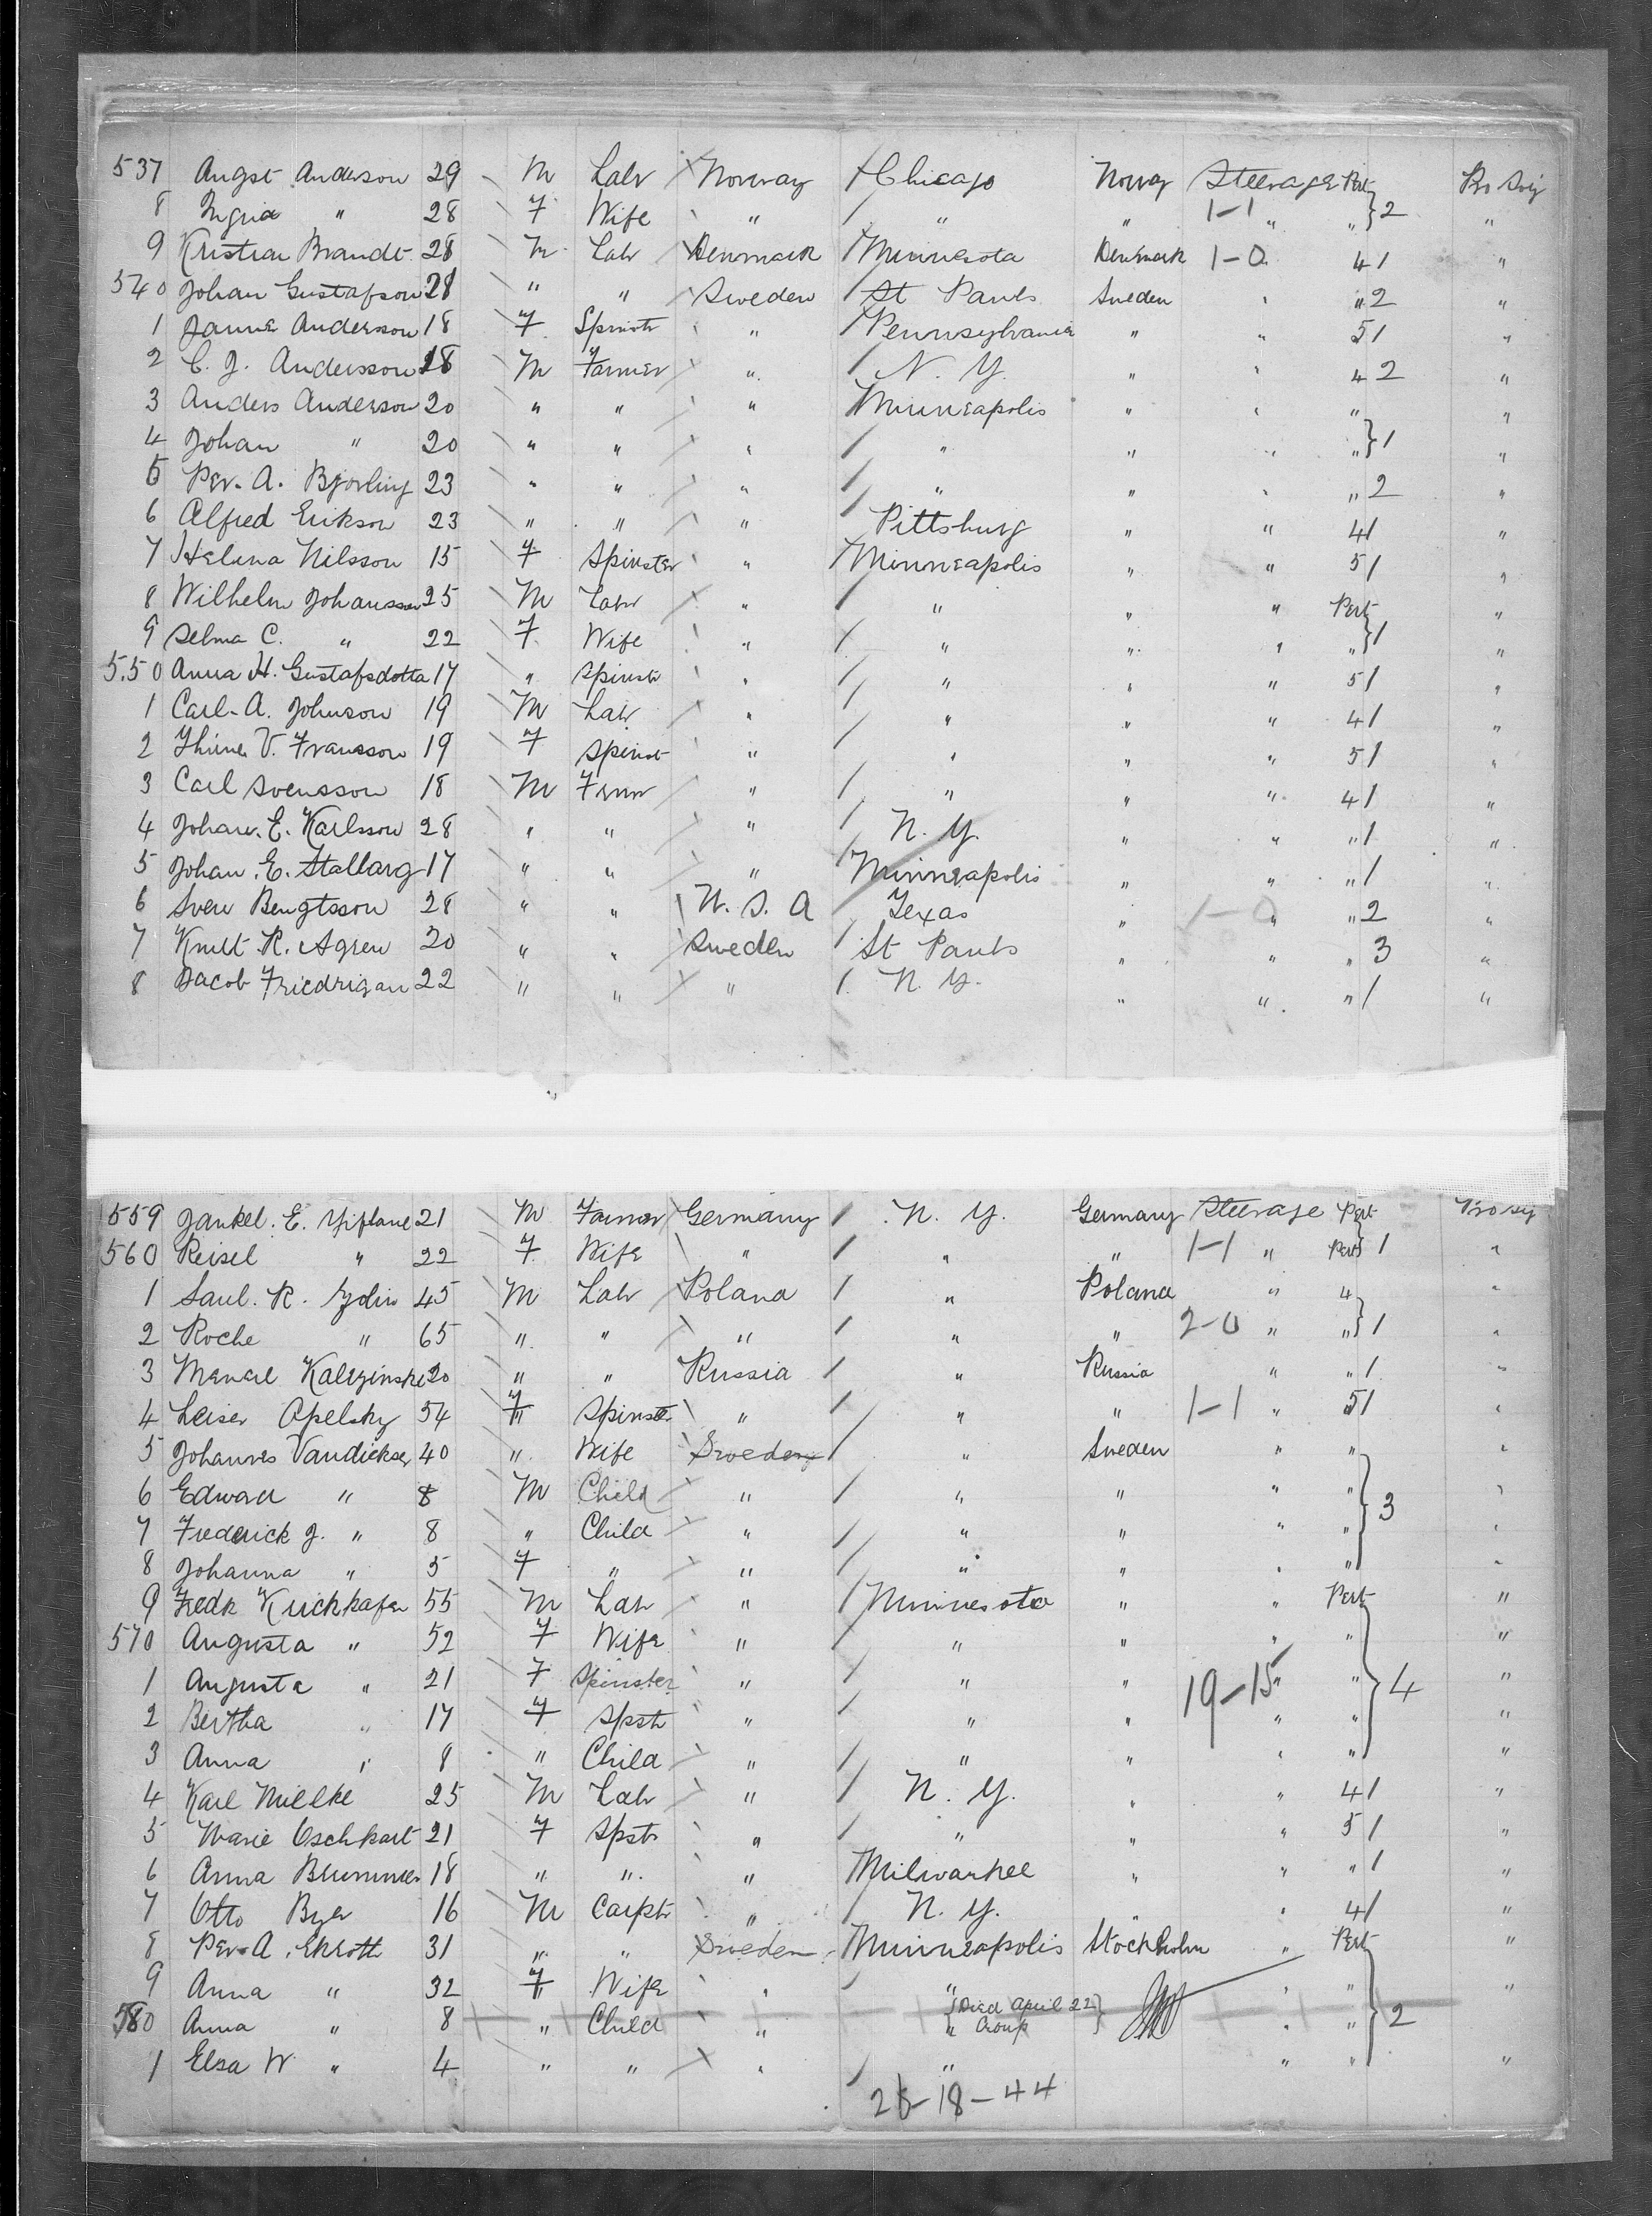 537 Angst Anderson 29 M Labr Norway Chicago Norway Steerage Port Pro Soj
8 Ingrid " 28 F Wife " " " 1-1 " " } 2 "
9 Kristian Brandt 28 M Labr Denmark Minnesota Denmark 1-0 4 1 "
540 Johan Gustafson 28 " " Sweden St Pauls Sweden " " 2 "
1 Janne Anderson 18 F Spinstr " Pennsylvania " " 5 1 "
2 C. J. Andersson 18 M Farmer " N. Y. " " 4 2 "
3 Anders Anderson 20 " " " Minneapolis " " " "
4 Johan " 20 " " " " " " " } 1 "
5 Per. A. Bjorling 23 " " " " " " " 2 "
6 Alfred Erikson 23 " " " Pittsburg " " 4 1 "
7 Helena Nilsson 15 F Spinster " Minneapolis " " 5 1 "
8 Wilhelm Johansson 25 M Labr " " " " Port "
9 Selma C. " 22 F. Wife " " " " " } 1 "
550 Anna H. Gustafsdotta 17 " Spinstr " " " " 5 1 "
1 Carl. A. Johnson 19 M Labr " " " " 4 1 "
2 V. Fransson 19 F Spinst " " " " 5 1 "
3 Carl Svensson 18 M Frmr " " " " 4 1 "
4 Johan. E. Karlsson 28 " " " N. Y. " " " 1 "
5 Johan. E. Stallarg 17 " " " Minneapolis " " " 1 "
6 Sven Bengtsson 28 " " U. S. A Texas " 1-0 " " 2 "
7 Knut R. Agren 20 " " Sweden St Pauls " " " 3 "
8 Jacob Friedrigan 22 " " " N. Y. " " " 1 "
559 Jankel. E. 21 M Farmer Germany N. Y. Germany Steerage Port Pro Soj
560 Reisel " 22 F. Wife " " " 1-1 " Port } 1 "
1 Saul. R. 45 M Labr Poland " Poland " 4 "
2 Roche " 65 " " " " " 2-0 " " } 1 "
3 20 " " Russia " Russia " " 1 "
4 Leiser Opelsky 54 F Spinstr " " " 1-1 " 5 1 "
5 Johannes 40 " Wife Sweden " Sweden " " "
6 Edward " 8 M Child " " " " " "
7 Frederick J. " 8 " Child " " " " " } 3 "
8 Johanna " 5 F " " " " " " "
9 Fredk 55 M Labr " Minnesota " " Port "
570 Augusta " 52 F Wife " " " " " "
1 Augusta " 21 F Spinster " " " 19-15 " " } 4 "
2 Bertha " 17 F Spstr " " " " " "
3 Anna " 8 " Child " " " " " "
4 Karl Mielke 25 M Labr " N. Y. " " 4 1 "
5 Marie Oschkart 21 F Spstr " " " " 5 1 "
6 Anna Brummer 18 " " " Milwaukee " " " 1 "
7 Otto Byer 16 M Carptr " N. Y. " " 4 1 "
8 Per A. Ekroth 31 " " Sweden Minneapolis Stockholm " Port "
9 Anna " 32 F Wife " " " " "
580 Anna " 8 " Child " " { Died April 22 Croup } " " } 2
1 Elsa W " 4 " " " " " " "
26-18-44